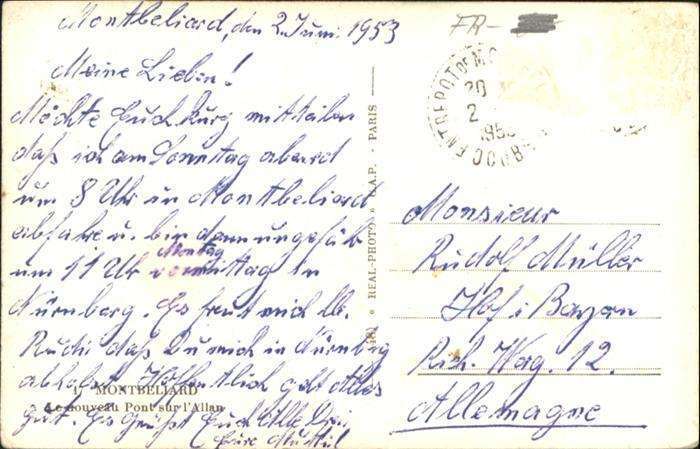 Montbeliard, den 2. Juni 1953
Meine Lieben!
Möchte Euch kurz mitteilen
daß ich am Sonntag abend
um 8 Uhr in Montbeliard
abfahre u. bin dann ungefähr
Montag
um 11 Uhr vormittag in
Nürnberg. Es freut mich lb.
Rudi daß Du mich in Nürnberg
abholst. Hoffentlich geht Alles
gut. Es grüßt Euch Alle Drei
Eure Mutti
17 MONTBELIARD
Le nouveau Pont sur l'Allan
« REAL-PHOTO » C.A.P. - PARIS
FR-
ENTREPOT DE MO
20
2
195
Monsieur
Rudolf Müller
Hof i Bayern
Rich. Wag. 12.
Allemagne